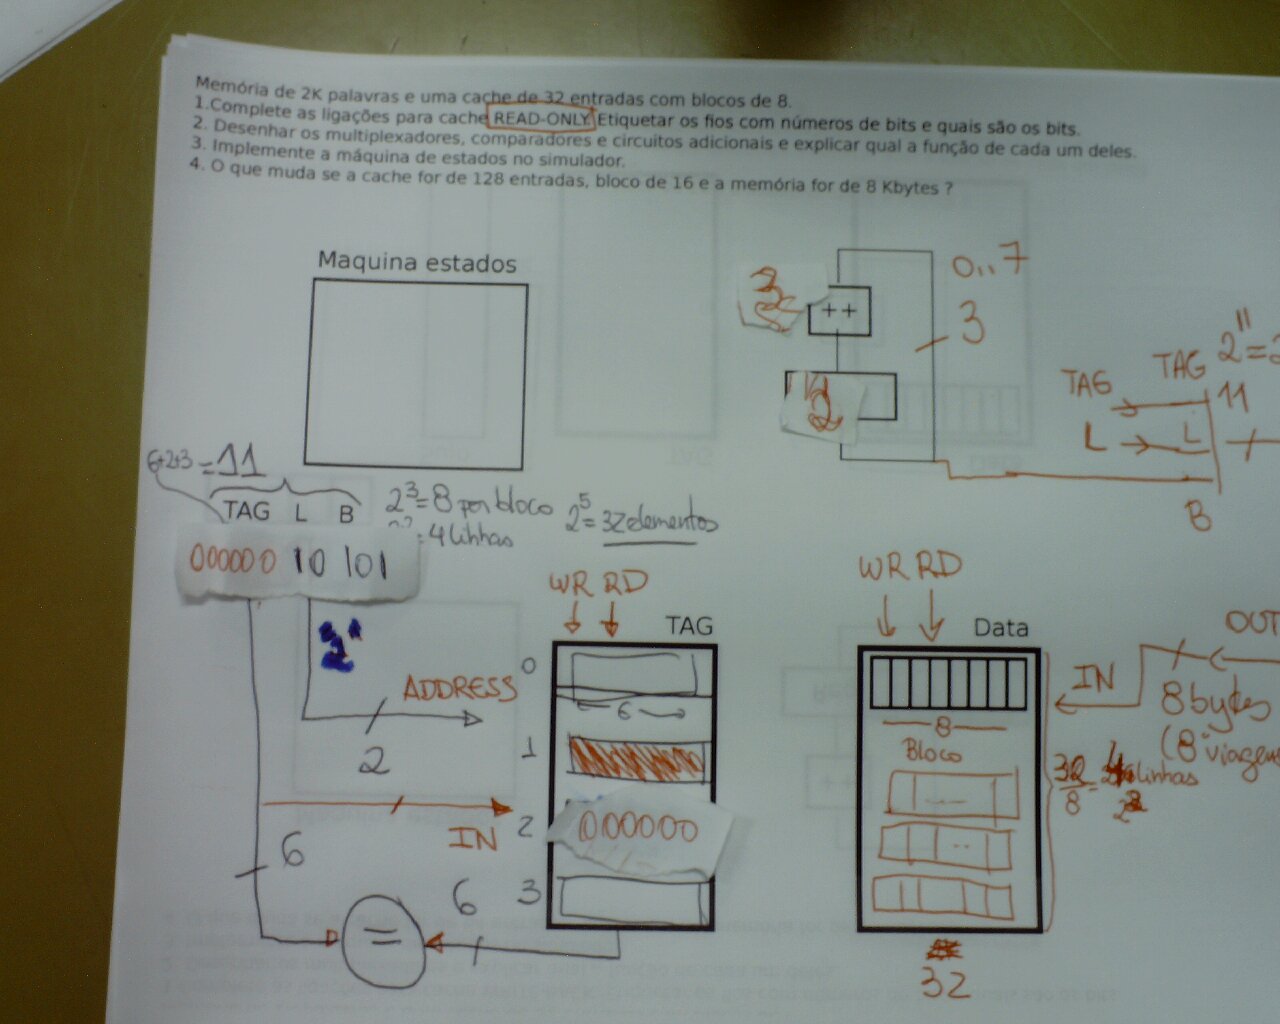 Memória de 2K palavras e uma cache de 32 entradas com blocos de 8.
1.Complete as ligações para cache READ-ONLY. Etiquetar os fios com números de bits e quais são os bits.
2. Desenhar os multiplexadores, comparadores e circuitos adicionais e explicar qual a função de cada um deles.
3. Implemente a máquina de estados no simulador.
4. O que muda se a cache for de 128 entradas, bloco de 16 e a memória for de 8 Kbytes ?
Maquina estados
0..7
++
3
TAG TAG 2^11=2
11
L L
B
6+2+3 = 11
TAG L B
2^3=8 por bloco 2^5=32 elementos
=4 linhas
000000 10 101
WR RD
TAG
WR RD
Data
OUT
0
ADDRESS
6
2
1
IN
8
Bloco
8 bytes
(8 viagens
32/8
linhas
IN
2
000000
6
3
6
=
32